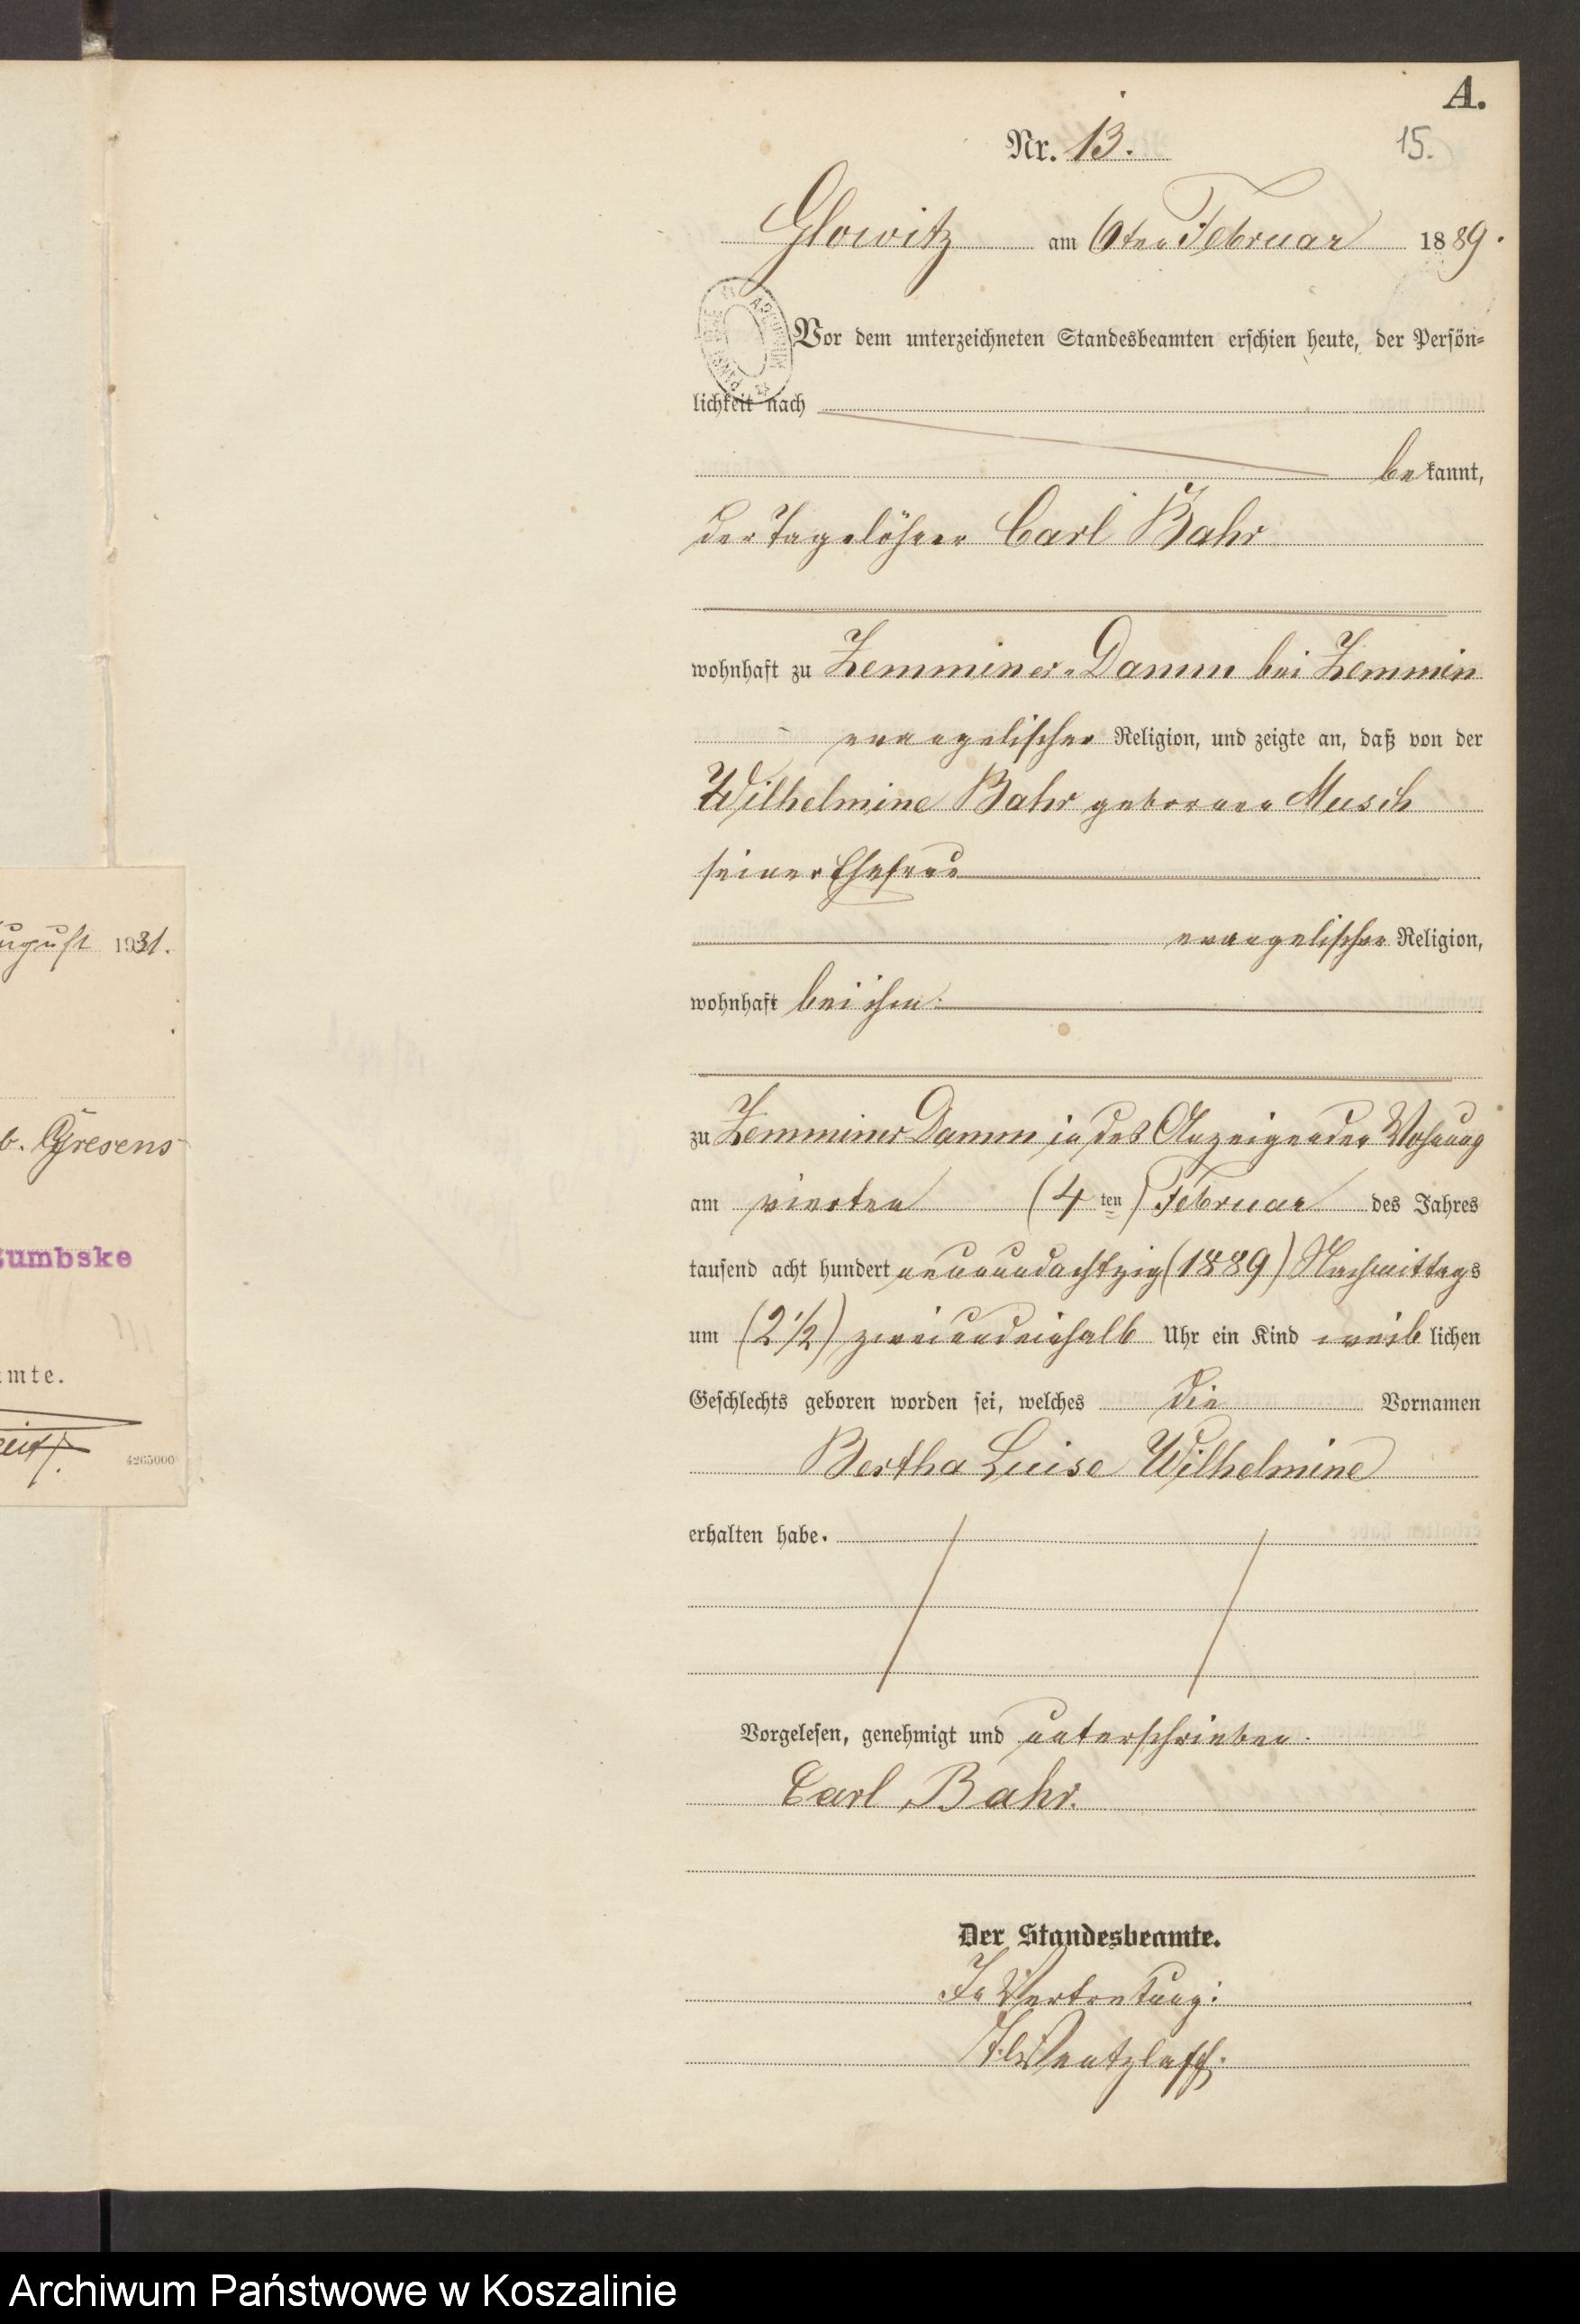 A.
Nr. 13.
15.
Glowitz am 6ten Februar 1889.
Vor dem unterzeichneten Standesbeamten erschien heute, der Persön-
lichkeit nach
bekannt,
der Tagelöhner Carl Bahr
wohnhaft zu Zemminer-Damm bei Zemmin
evangelischer Religion, und zeigte an, daß von der
Wilhelmine Bahr geborenen Musch
seiner Ehefrau
evangelischer Religion,
wohnhaft bei ihm.
zu Zemminer Damm in des Anzeigenden Wohnung
am vierten (4 ten) Februar des Jahres
tausend acht hundert neunundachtzig (1889) Nachmittags
um (2 1/2) zweiundeinhalb Uhr ein Kind weiblichen
Geschlechts geboren worden sei, welches die Vornamen
Bertha Luise Wilhelmine
erhalten habe.
Vorgelesen, genehmigt und unterschrieben.
Carl Bahr.
Der Standesbeamte.
In Vertretung:
Wentzlaff.
ugust 1931.
b. Gresens
umbske
mte.
4265000
Archiwum Państwowe w Koszalinie